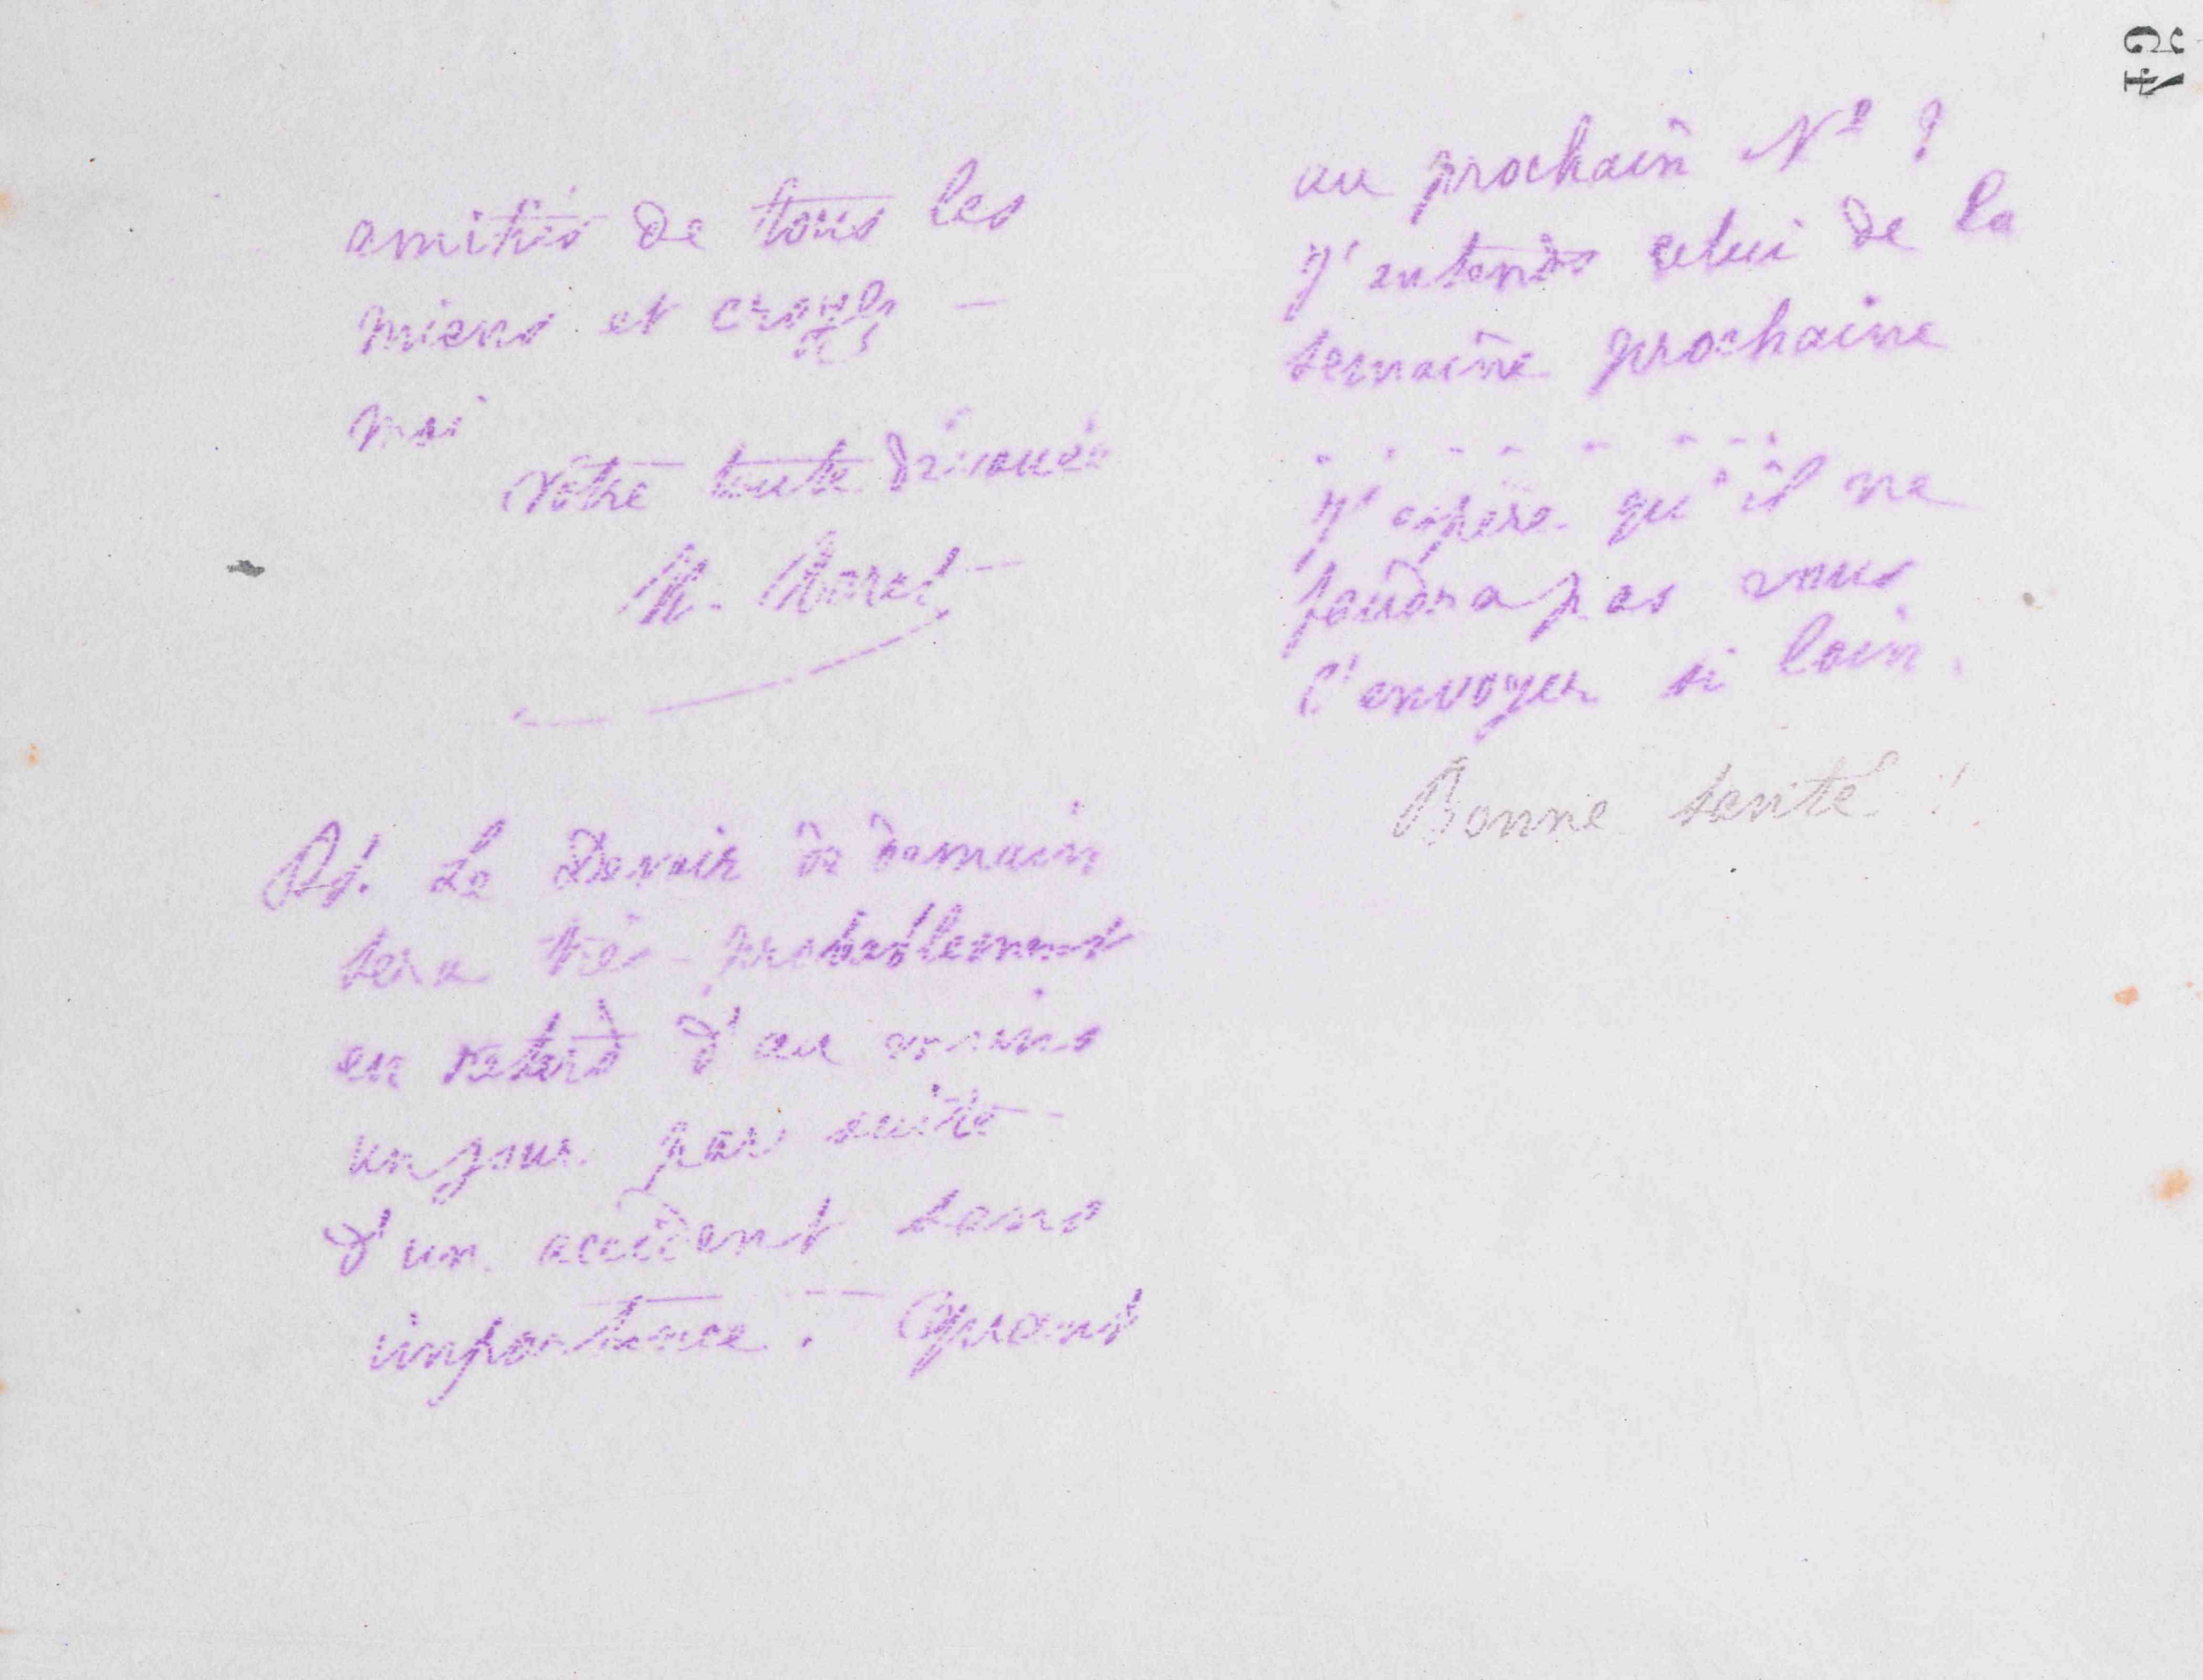 amitiés de tous les
miens et croyez
moi
Votre toute dévouée
M. Moret
Ps. Le Devoir de demain
sera très-probablement
en retard d'au moins
un jour par suite
d'un accident sans
importance. Quand
au prochain Nº ?
J'entends celui de la
semaine prochaine
. . . . . . . .
J'espère qu'il ne
faudra pas vous
l'envoyer si loin.
Bonne santé !
54